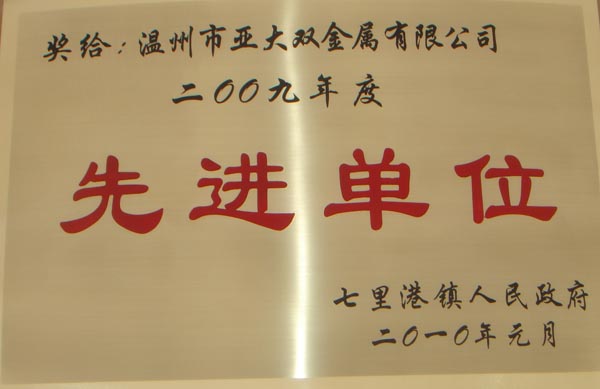 奖给：温州市亚大双金属有限公司
二〇〇九年度
先进单位
七里港镇人民政府
二〇一〇年元月